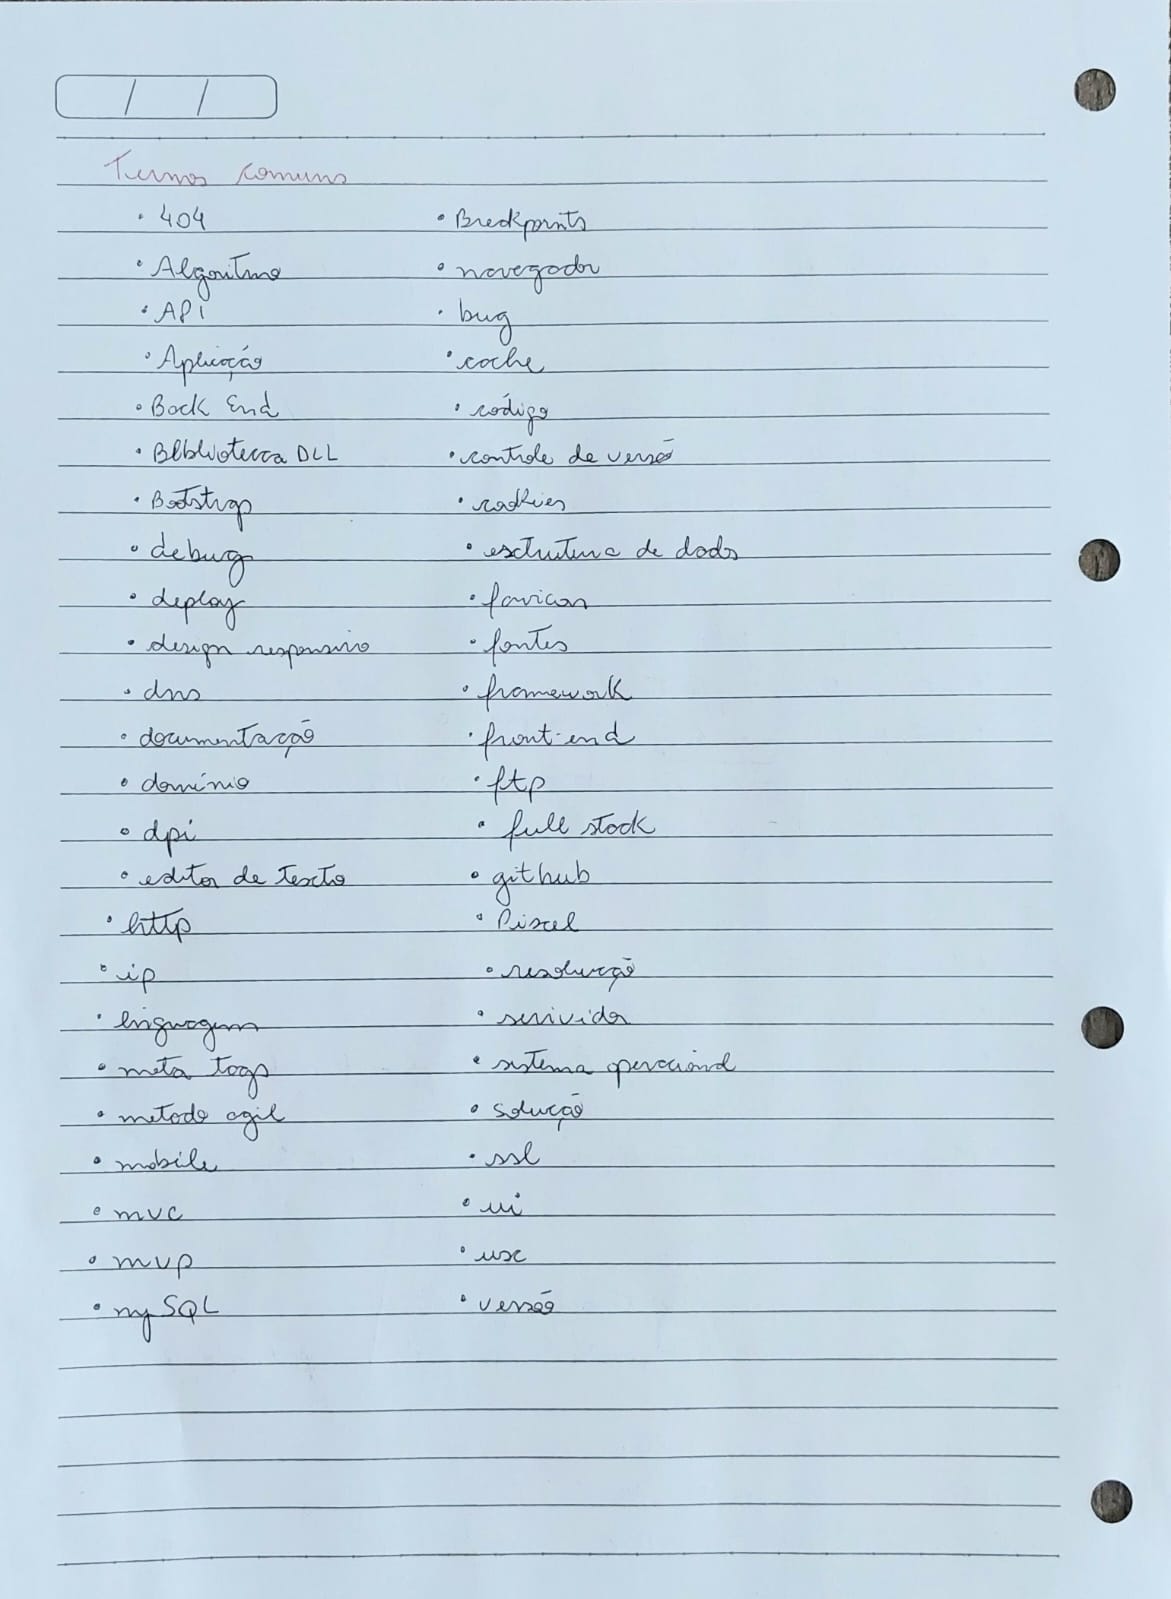 Termos comuns
• 404
• Algoritmo
• API
• Aplicação
• Back End
• BIbliotecca DLL
• Bootstrap
• debug
• deploy
• design responsivo
• dns
• documentação
• domínio
• dpi
• editor de texto
• http
• ip
• linguagem
• meta tags
• metodo agil
• mobile
• mvc
• mvp
• mySQL
• Breakpoints
• navegador
• bug
• cache
• código
• controle de versão
• cookies
• estrutura de dados
• favicon
• fontes
• framework
• front-end
• ftp
• full stack
• github
• Pixel
• resolução
• servidor
• sistema operacional
• solução
• ssl
• ui
• ux
• versão